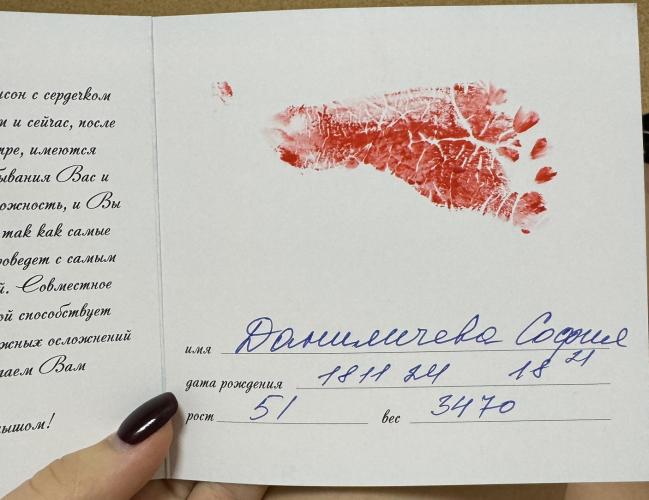 сон с сердечком
и сейчас, после
имеются
бывания Вас и
и Вы
так как самые
проведет с самым
Совместное
способствует
осложнений
Вам
имя Даниличева София
дата рождения 18 11 24 18 21
рост 51 вес 3470